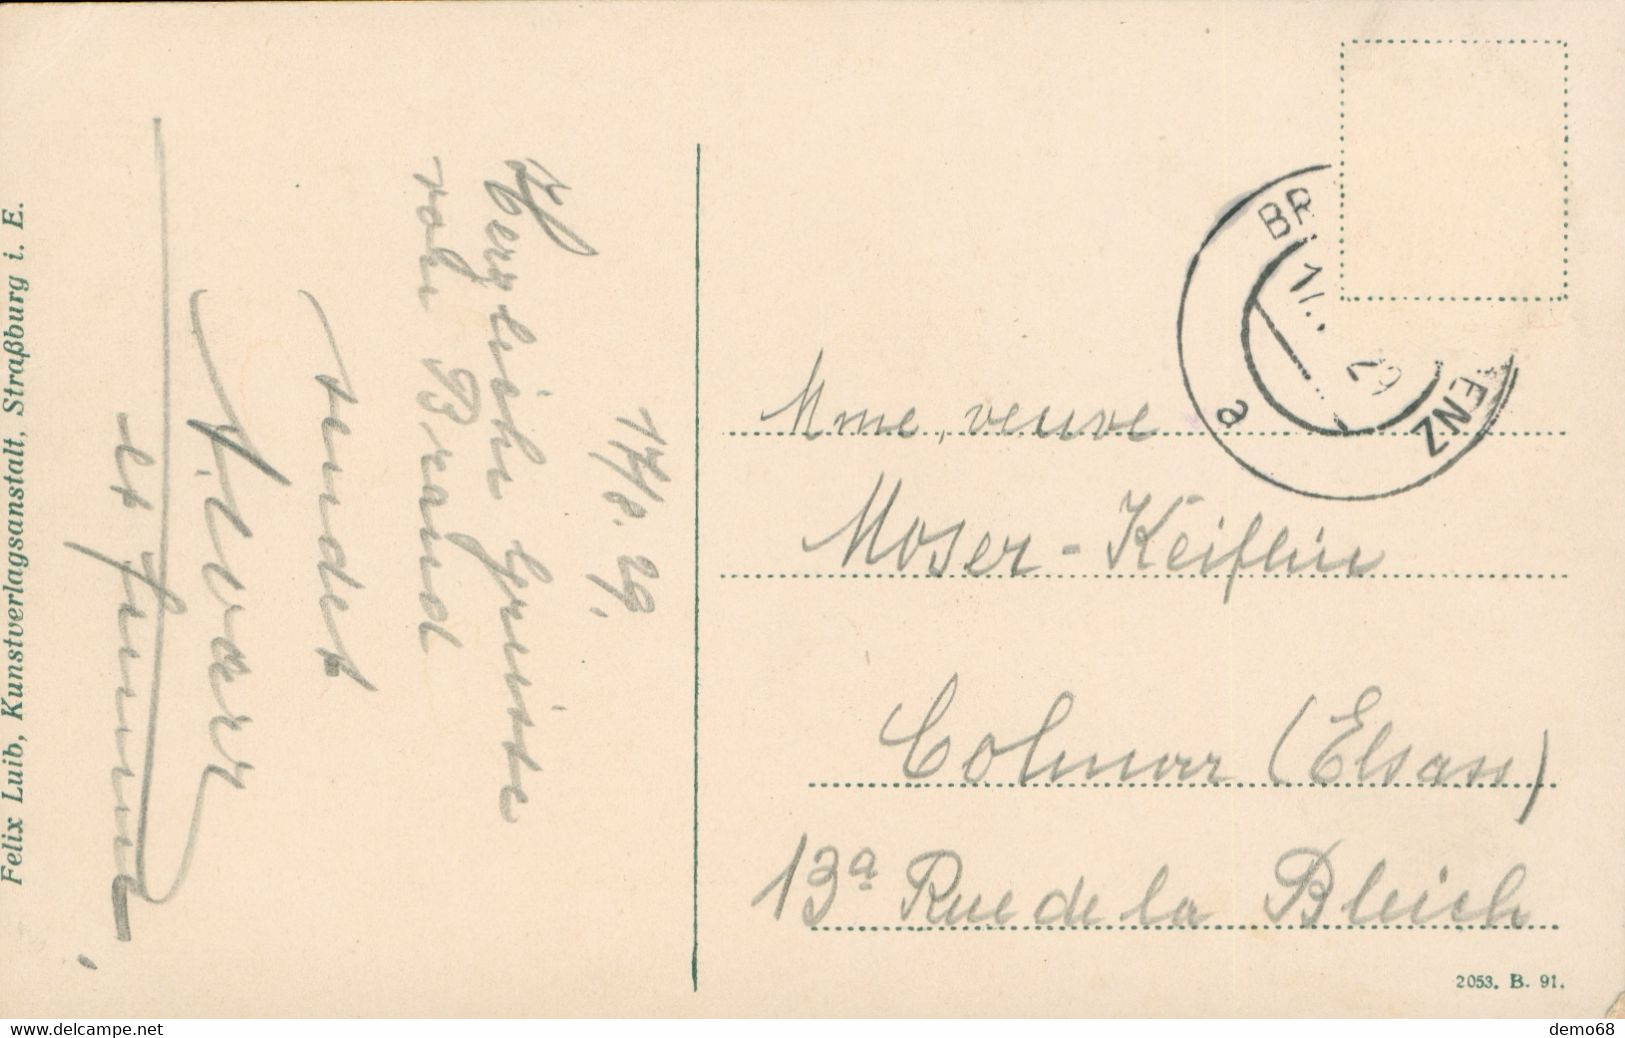 17/8. 29.
Herzliche Grüsse
vom Brand
sendet
et femme
Felix Luib, Kunstverlagsanstalt, Straßburg i. E.
BR ENZ
17 29
a
Mme, veuve
Moser-Keiflin
Colmar (Elsass)
13a Rue de la Bleich
2053. B. 91.
www.delcampe.net
demo68